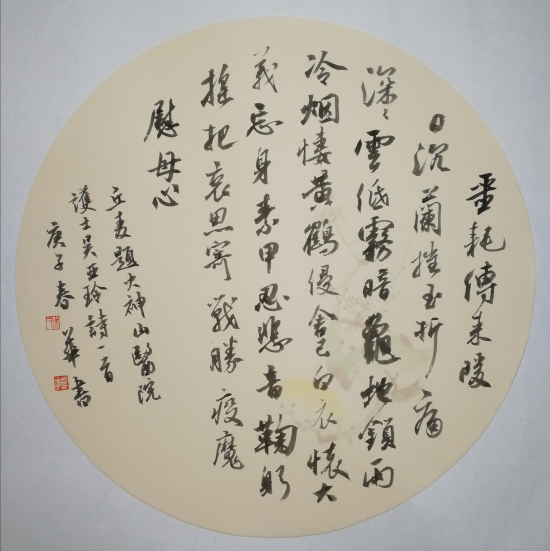 噩耗傳来陵
日沉蘭摧玉折痛
深〻雲低霧暗龜蛇鎖雨
冷烟悽黄鶴侵舍己白衣懷大
義忘身素甲忍悲音鞠躬
摇把哀思寄戰勝疫魔
慰母心
丘麦題火神山醫院
護士吴亚玲詩一首
庚子春華書